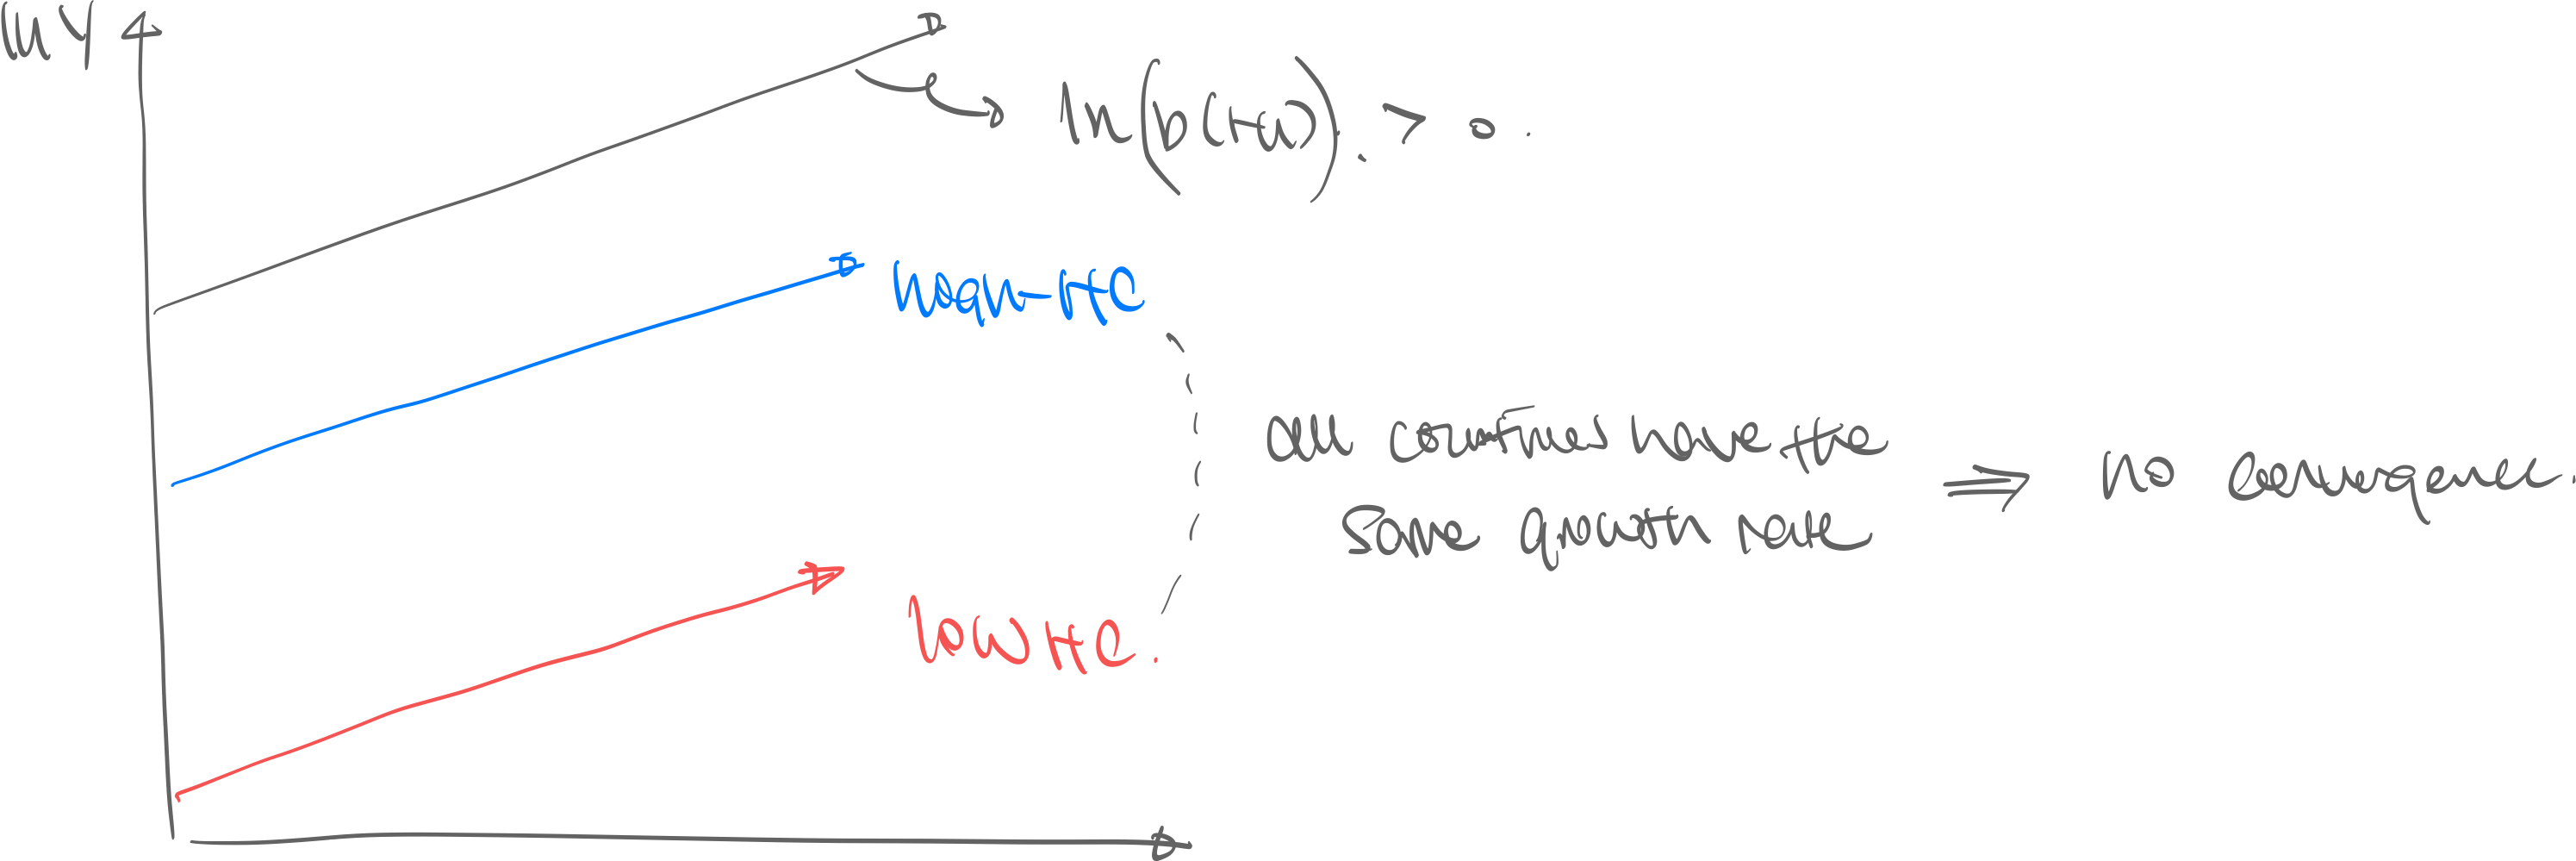 ln Y
ln(b(1-u)). > 0.
high-HC
low HC.
all countries have the
same growth rate
⇒ no convergence.